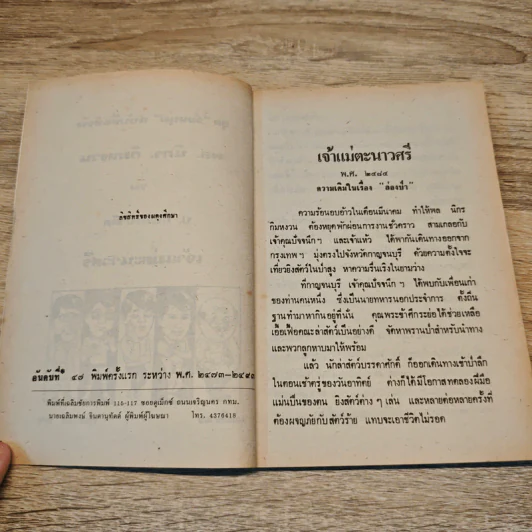 ลิขสิทธิ์ของผดุงศึกษา
อันดับที่ ๔๗ พิมพ์ครั้งแรก ระหว่าง พ.ศ. ๒๔๘๓-๒๔๙๓
พิมพ์ที่เฉลิมชัยการพิมพ์ 115-117 ซอยดูเม็กซ์ ถนนเจริญนคร กทม.
นายเฉลิมพงษ์ จินดานุทัตต์ ผู้พิมพ์ผู้โฆษณา โทร. 4376418
เจ้าแม่ตะนาวศรี
พ.ศ. ๒๔๘๔
ความเดิมในเรื่อง "ล่องป่า"
ความร้อนอบอ้าวในเดือนมีนาคม ทำให้พล นิกร
กิมหงวน ต้องหยุดพักผ่อนการงานชั่วคราว สามเกลอกับ
เจ้าคุณปัจจนึก ฯ และเจ้าแห้ว ได้พากันเดินทางออกจาก
กรุงเทพ ฯ มุ่งตรงไปจังหวัดกาญจนบุรี ด้วยความตั้งใจจะ
เที่ยวยิงสัตว์ในป่าสูง หาความรื่นเริงในยามว่าง
ที่กาญจนบุรี เจ้าคุณปัจจนึก ฯ ได้พบกับเพื่อนเก่า
ของท่านคนหนึ่ง ซึ่งเป็นนายทหารนอกประจำการ ตั้งถิ่น
ฐานทำมาหากินอยู่ที่นั่น คุณพระช้าศึกระย่อได้ช่วยเหลือ
เอื้อเฟื้อคณะล่าสัตว์เป็นอย่างดี จัดหาพรานป่าสำหรับนำทาง
และพวกลูกหาบมาให้พร้อม
แล้ว นักล่าสัตว์บรรดาศักดิ์ ก็ออกเดินทางเข้าป่าลึก
ในตอนเช้าตรู่ของวันอาทิตย์ ต่างก็ได้มีโอกาสทดลองฝีมือ
แม่นปืนของตน ยิงสัตว์ต่าง ๆ เล่น และหลายต่อหลายครั้งที่
ต้องผจญภัยกับสัตว์ร้าย แทบจะเอาชีวิตไม่รอด